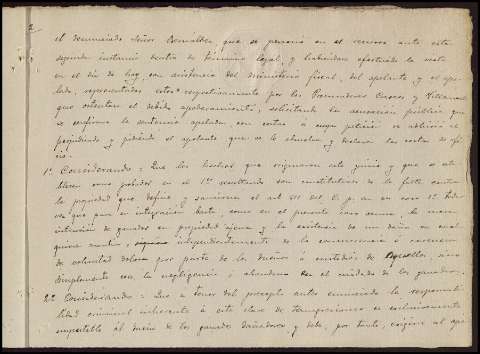 2
el denunciado Señor González, que se personó en el recurso ante esta
segunda instancia dentro de término legal, y habiéndose efectuado la vista
en el día de hoy, con asistencia del ministerio fiscal, del apelante y el ape-
lado, representados estos respectivamente por los Procuradores y
que ostentan el debido apoderamiento, solicitando la acusación pública que
se confirme la sentencia apelada, con costas á cuya petición se adhirió el
perjudicado, y pidiendo el apelante que se le absuelva, y declaren las costas de ofi-
cio.
1º Considerando: Que los hechos que originaron este juicio y que se esta-
blecen como probados en el 1er resultando son constitutivos de la falta contra
la propiedad que define y sanciona el art 611 del C. p. en su caso 1º toda
vez que para su integración basta, como en el presente caso ocurre, la mera
intrusión de ganados en propiedad ajena y la existencia de un daño en cual-
quiera cuantía, independientemente de la concurrencia ó carencia
de voluntad dolosa por parte de los dueños ó custodios de aquellos, sino
simplemente con la negligencia ó abandono en el cuidado de los ganados.
2º Considerando: Que a tenor del precepto antes enunciado la responsabi-
lidad criminal inherente á esta clase de transgresiones es exclusivamente
imputable al dueño de los ganados dañadores y debe, por tanto, exigirse al ape-